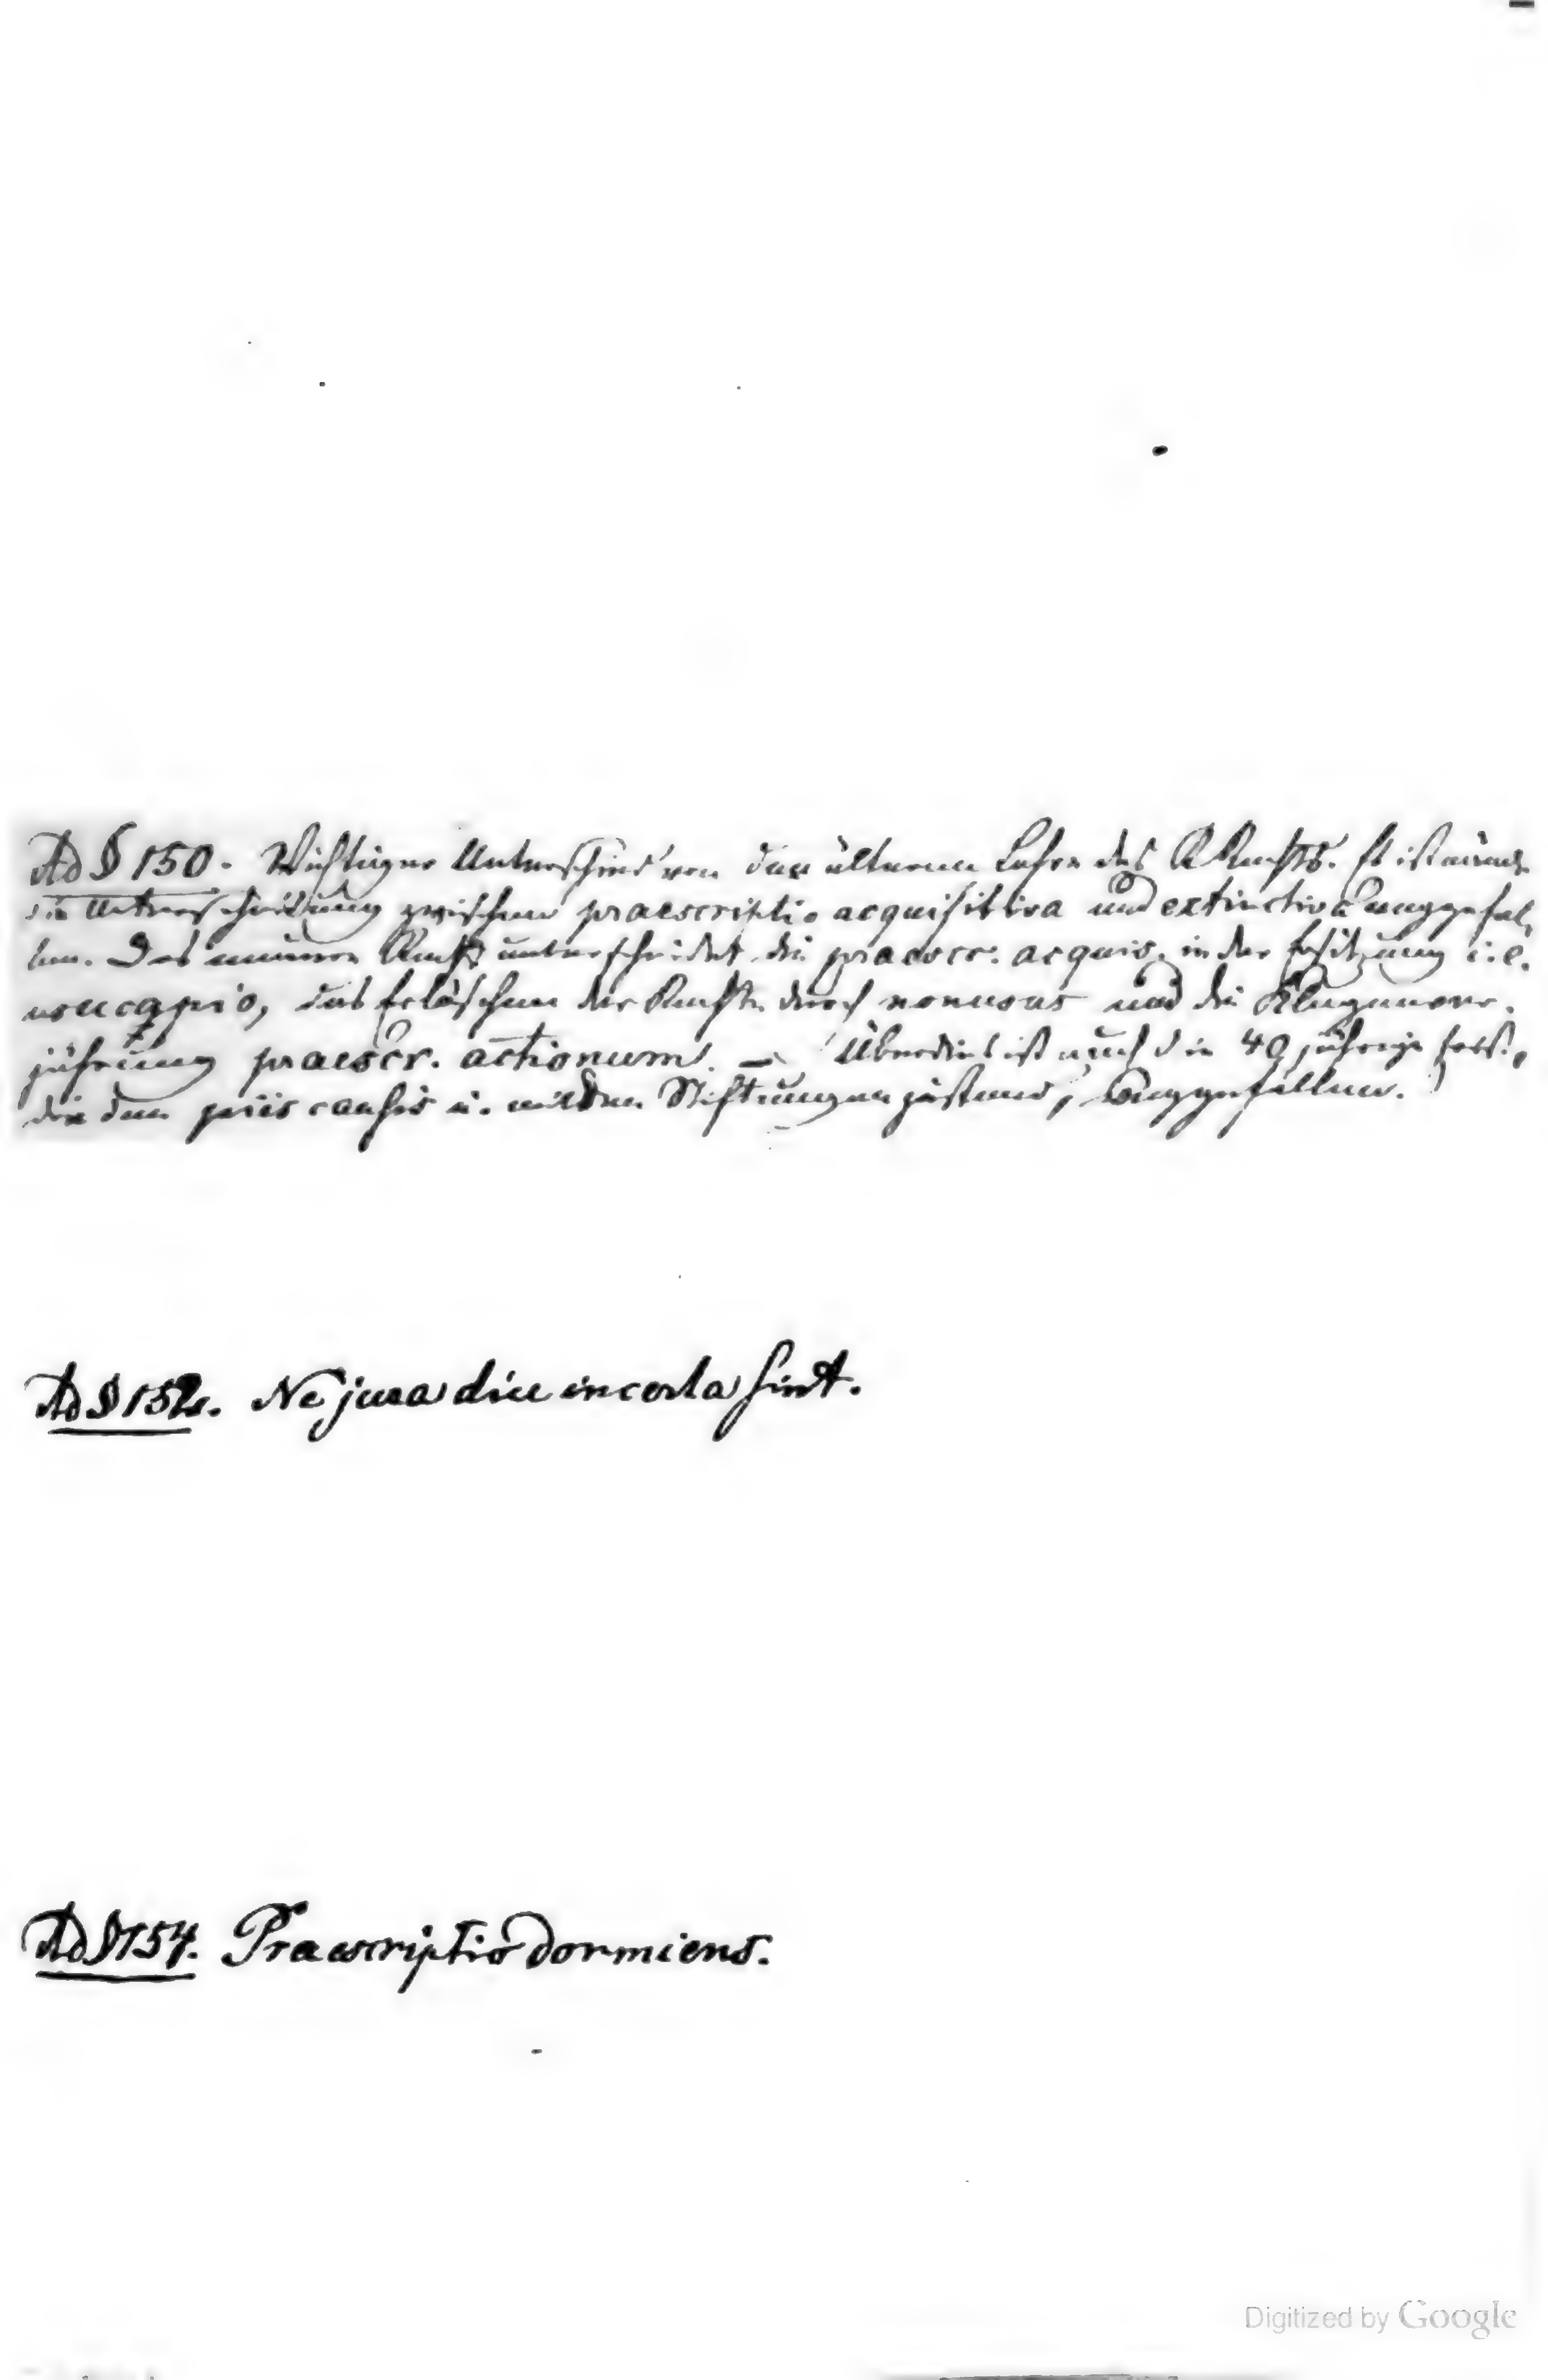 Ad § 150. Wichtiger Unterschied von der älteren Lehre des R Rechts. Es ist näml.
die Unterscheidung zwischen praescriptio acquisitiva und extinctiva weggefal,
len. Das neuere Recht unterscheidet die praescr. acquis. in der Ersitzung i.e.
usucapio, das Erlöschen der Rechte durch nonusus und die Klagenver,
jährung praescr. actionum. — Überdies ist auch die 40 jährige
die den piis causis u. milden Stiftungen zustand, weggefallen.
Ad § 152. Ne jura diu incerta sint.
Ad § 154. Praescriptio dormiens.
Digitized by Google